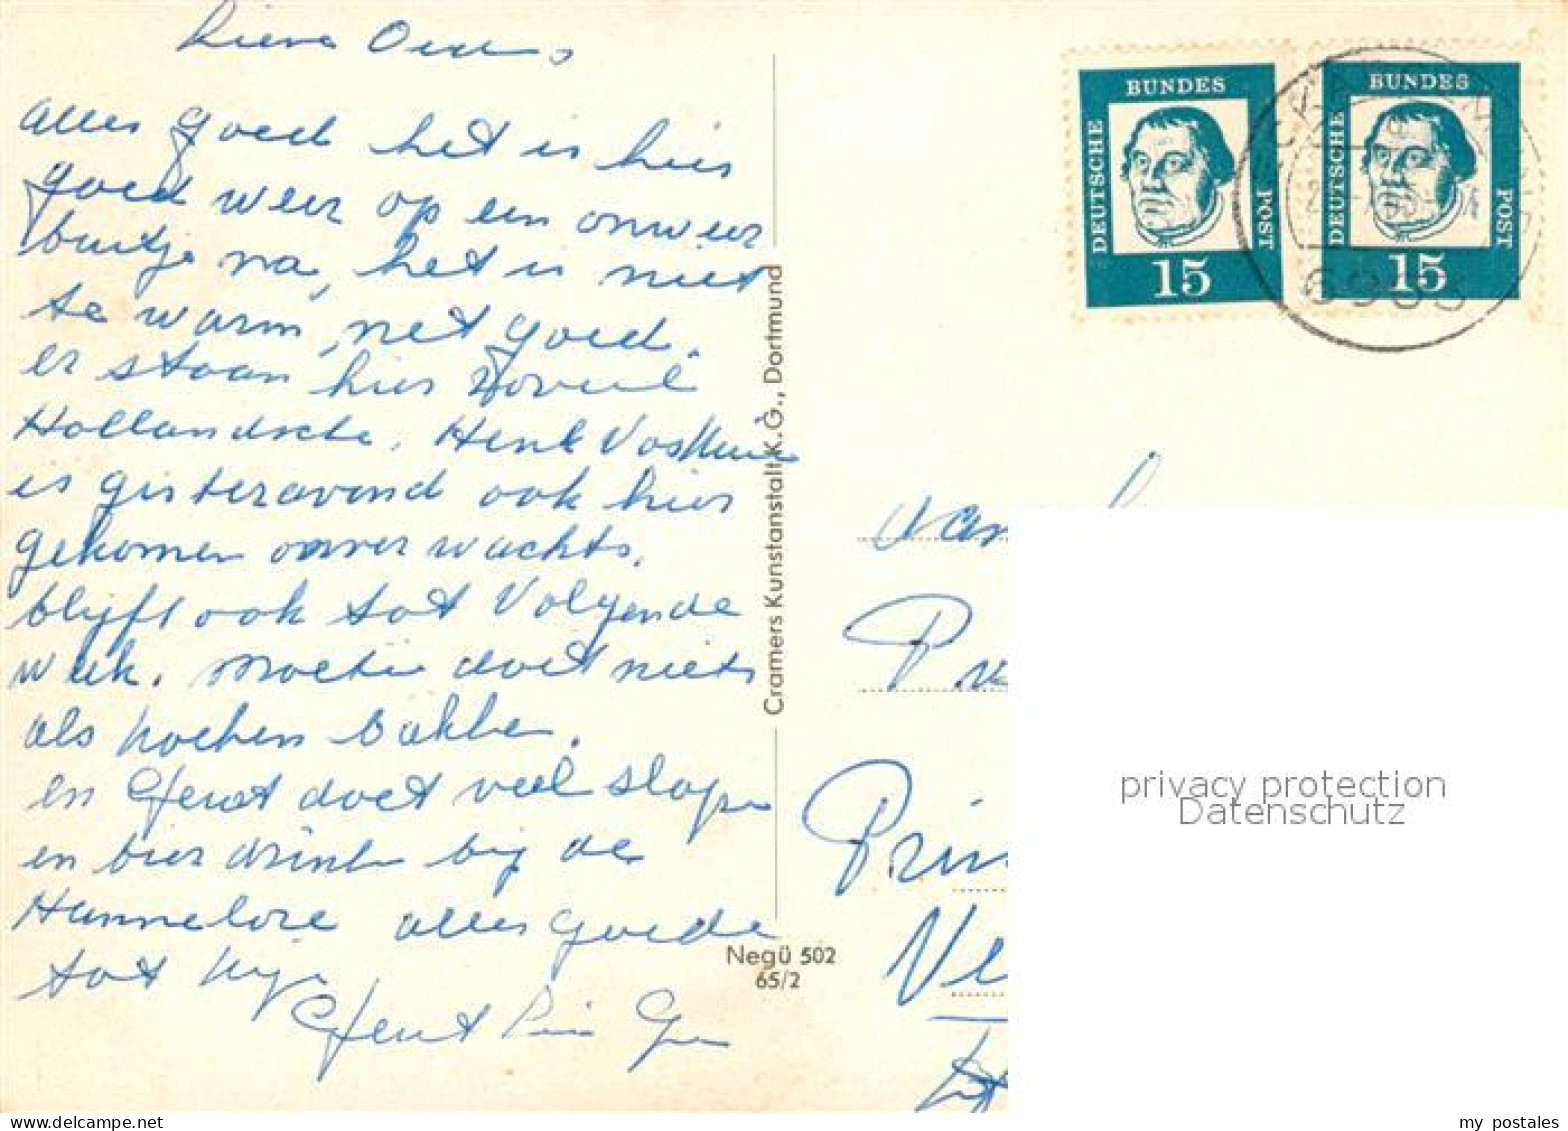 Lieve Ouders
alles goed het is hier
goed weer op een onweer
buitje na, het is niet
te warm, net goed.
er staan hier zoveel
Hollandsche. Henk
is gisteravond ook hier
gekomen onverwachts.
blijft ook tot volgende
week. doet niets
als kochen bakke.
en Geert doet veel slape
en bier drinke bij de
Hannelore alles goede
tot kijk
Geert
Cramers Kunstanstalt K.G., Dortmund
Negü 502
65/2
DEUTSCHE BUNDES POST
15
DEUTSCHE BUNDES POST
15
privacy protection
Datenschutz
www.delcampe.net
my_postales